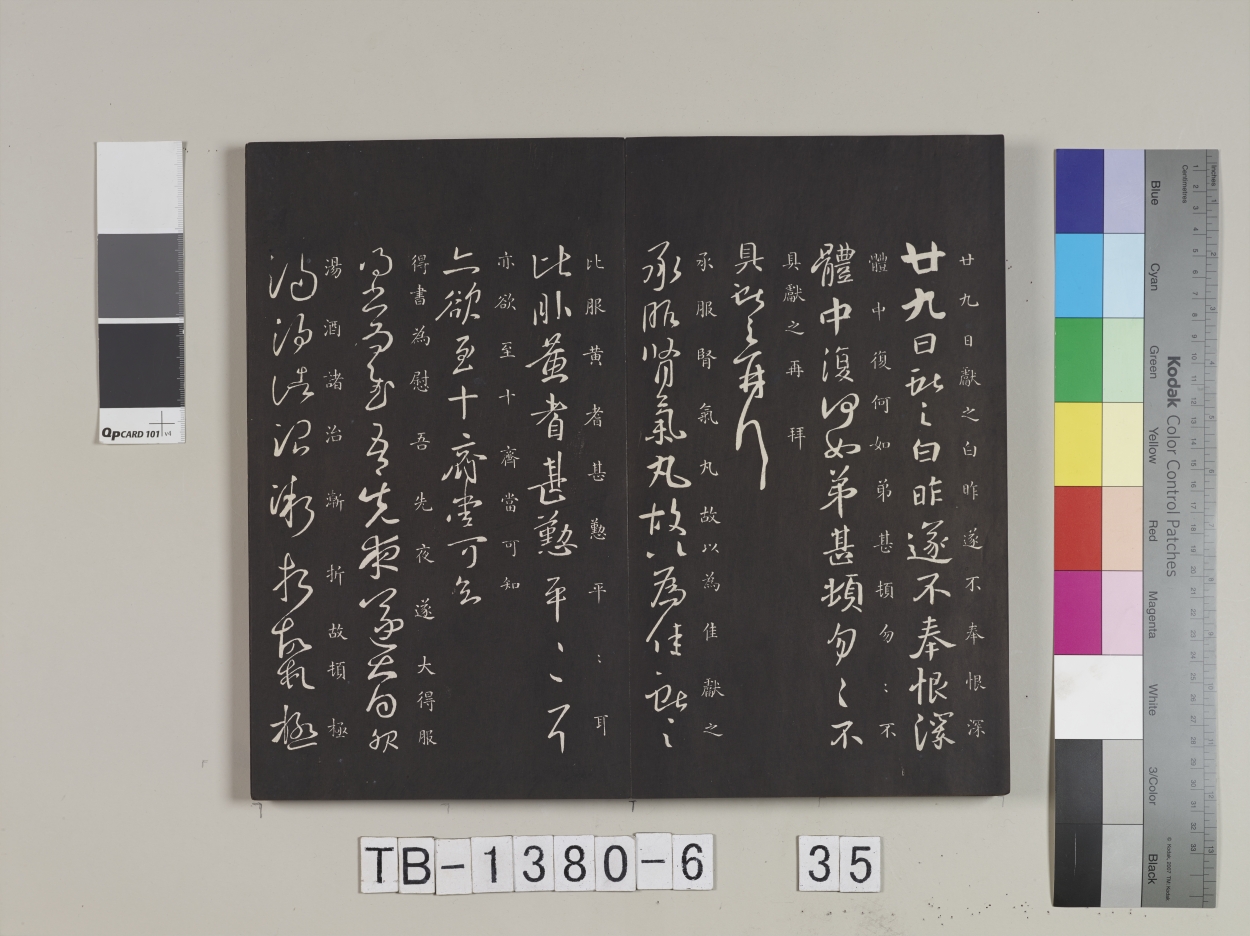 廿九日獻之白昨遂不奉恨深
廿九日獻之白昨遂不奉恨深
體中復何如弟甚頓勿：不
體中復何如弟甚頓勿〻不
具獻之再拜
具獻之再拜
承服腎氣丸故以為佳獻之
承服腎氣丸故以為佳獻之
比服黄耆甚懃平：耳
比服黄耆甚懃平〻耳
亦欲至十齊當可知
亦欲至十齊當可知
得書為慰吾先夜遂大得服
得書為慰吾先夜遂大得服
湯酒諸治漸折故頓極
湯酒諸治漸折故頓極
QPCARD 101 v4
TB-1380-6
35
Kodak Color Control Patches
Blue
Cyan
Green
Yellow
Red
Magenta
White
3/Color
Black
Inches
Centimetres